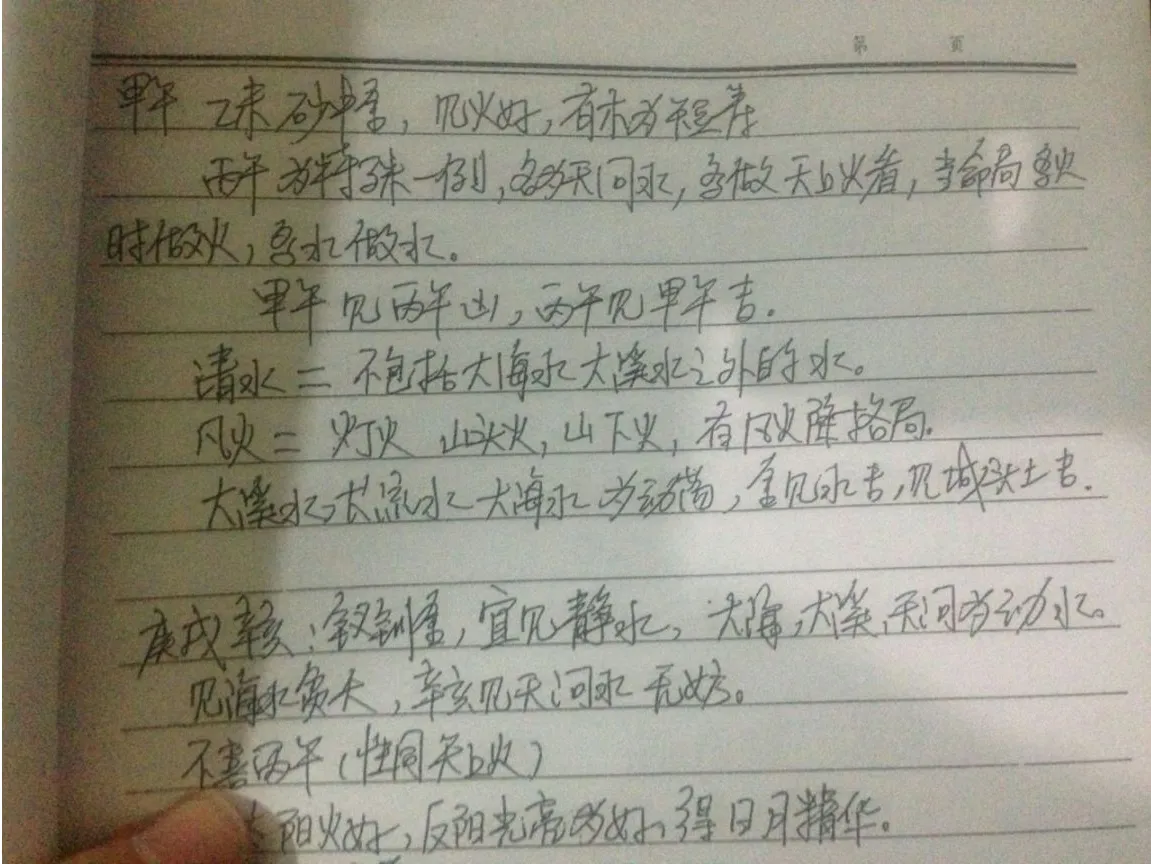 第 页
甲午 乙未 砂中金，见火好，有木为短寿
丙午为特殊一例，多为天河水，多做天上火看，当命局多火
时做火，多水做水。
甲午见丙午凶，丙午见甲午吉.
清水＝不包括大海水大溪水之外的水。
风火＝灯火 山头火，山下火，有风火降格局.
大溪水，长流水 大海水为动荡，金见水吉，见城头土吉.
庚戌辛亥：钗钏金，宜见静水， 大海，大溪，天河为动水。
见海水贫夭，辛亥见天河水无妨。
不喜丙午（性同天上火）
阳火好，反阳光亮为好，得日月精华。